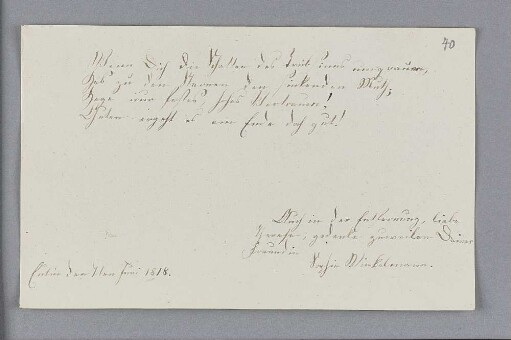 40
Wenn Dich die Schatten des Trübsinns umgrauen,
Heb' zu den Sternen den sinkenden Muth;
Hege nur festes, hohes Vertrauen!
Guten ergeht es am Ende doch gut!
Auch in der Entfernung, liebe
gedenke zuweilen Deiner
Freundin
Sophie Winkelmann.
Eutin den 1ten Juni 1818.